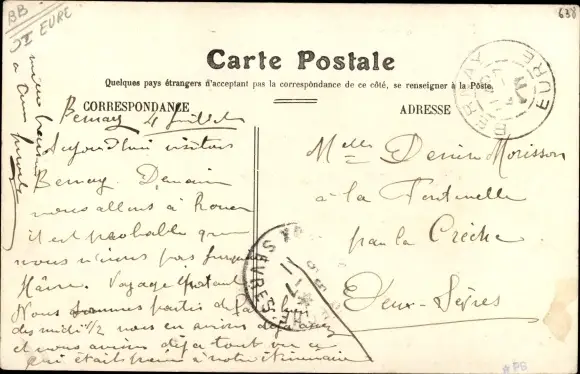 BB
638
EURE
Carte Postale
Quelques pays étrangers n'acceptent pas la correspondance de ce côté, se renseigner à la Poste.
CORRESPONDANCE
ADRESSE
BERNAY
EURE
Bernay 4 Juillet
Aujourd'hui visitons
Bernay. Demain
nous allons à Rouen
il est probable que
nous n'irons pas jusqu
Voyage épatant
Nous sommes partis de
des midi 1/2 nous en avions déjà assez
et nous avions déjà tout vu ce
qui était à notre itinéraire
Melle Denise Morisson
à la Fontenelle
par la Crèche
Deux-Sèvres
SÈVRES
*PB